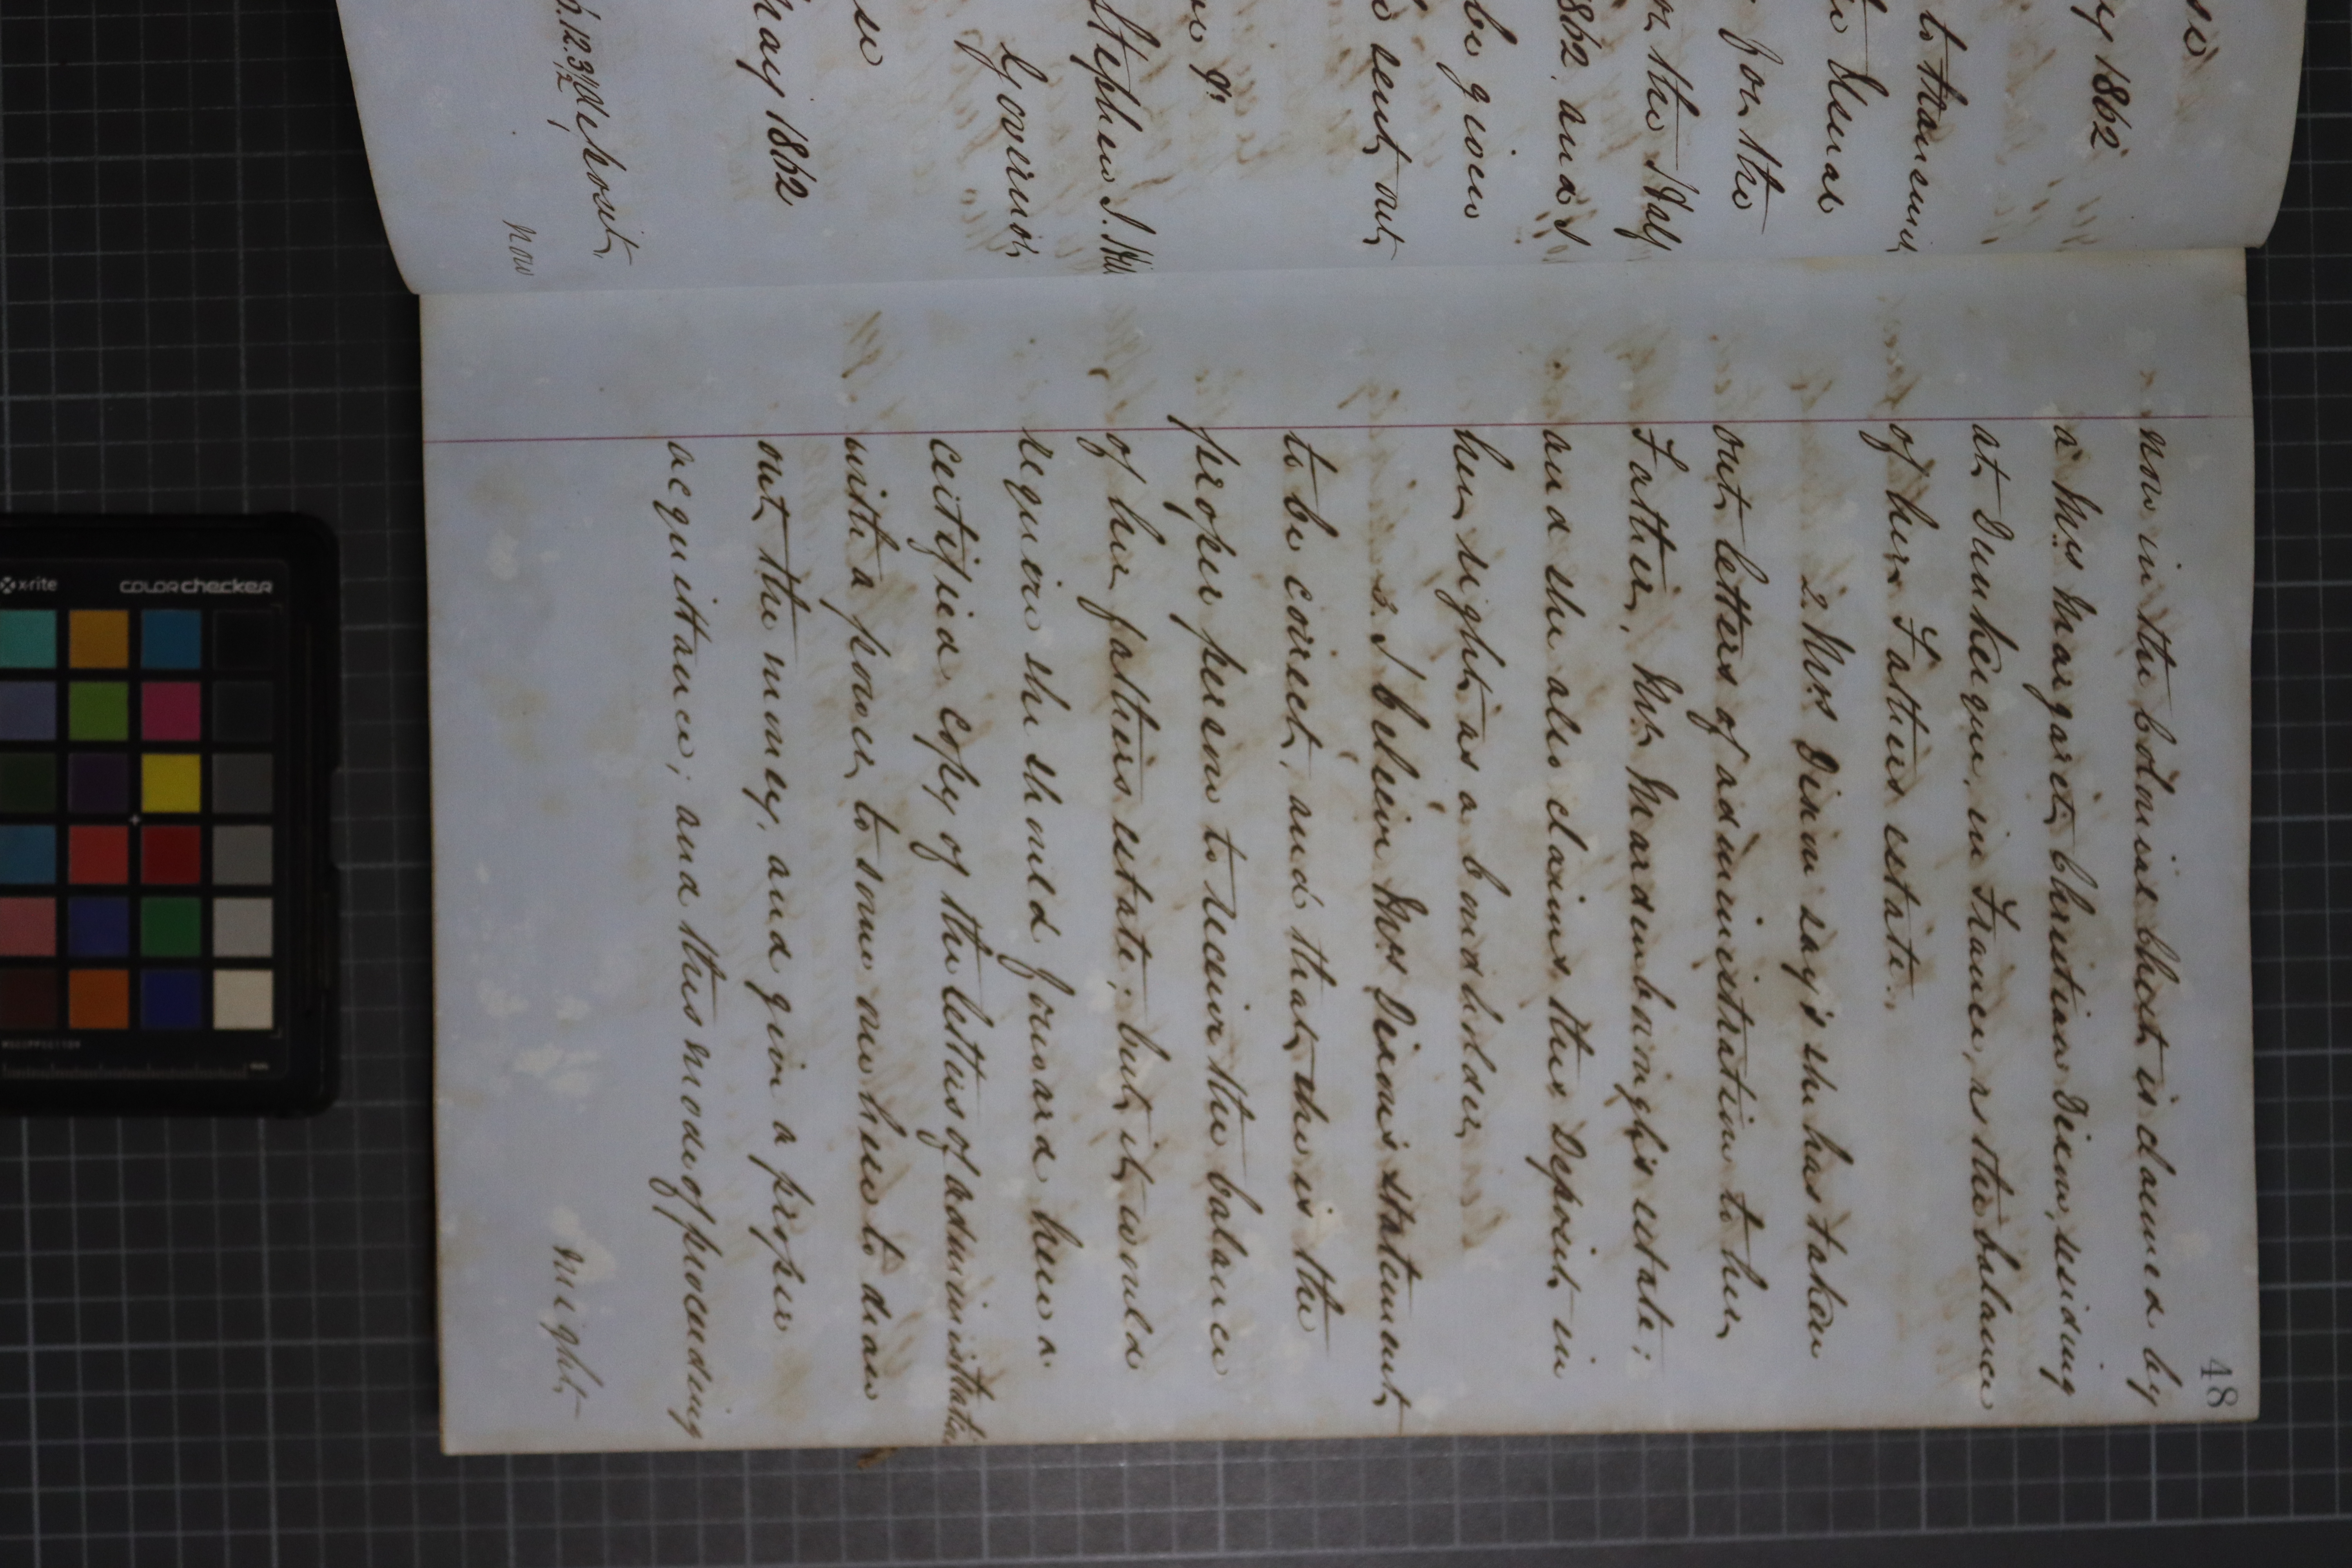 se
y 1862
to transmit
Usual
for the
or the Half
1862, and I
be given
sent out
Stephen J. Hill
Governor
se
May 1862
5.12.3½ deposit,
now
48
now in the Colonial Chest is claimed by
a Mrs Margaret Christian Dixon, residing
at Dunkerque, in France, as the balance
of her Fathers estate.
2. Mrs Dixon says she has taken
out letters of administration to her
Father, Mr Mardenbaugh's estate;
and she also claims this Deposit in
her right as a bondholder
3. I believe Mrs Dixon's statement
to be correct, and that she is the
proper person to receive the balance
of her father's estate; but it would
require she should forward here a
certified copy of the letters of administration
with a power to some one here to draw
out the money, and give a proper
acquittance; and this mode of proceeding
might
x-rite
colorchecker